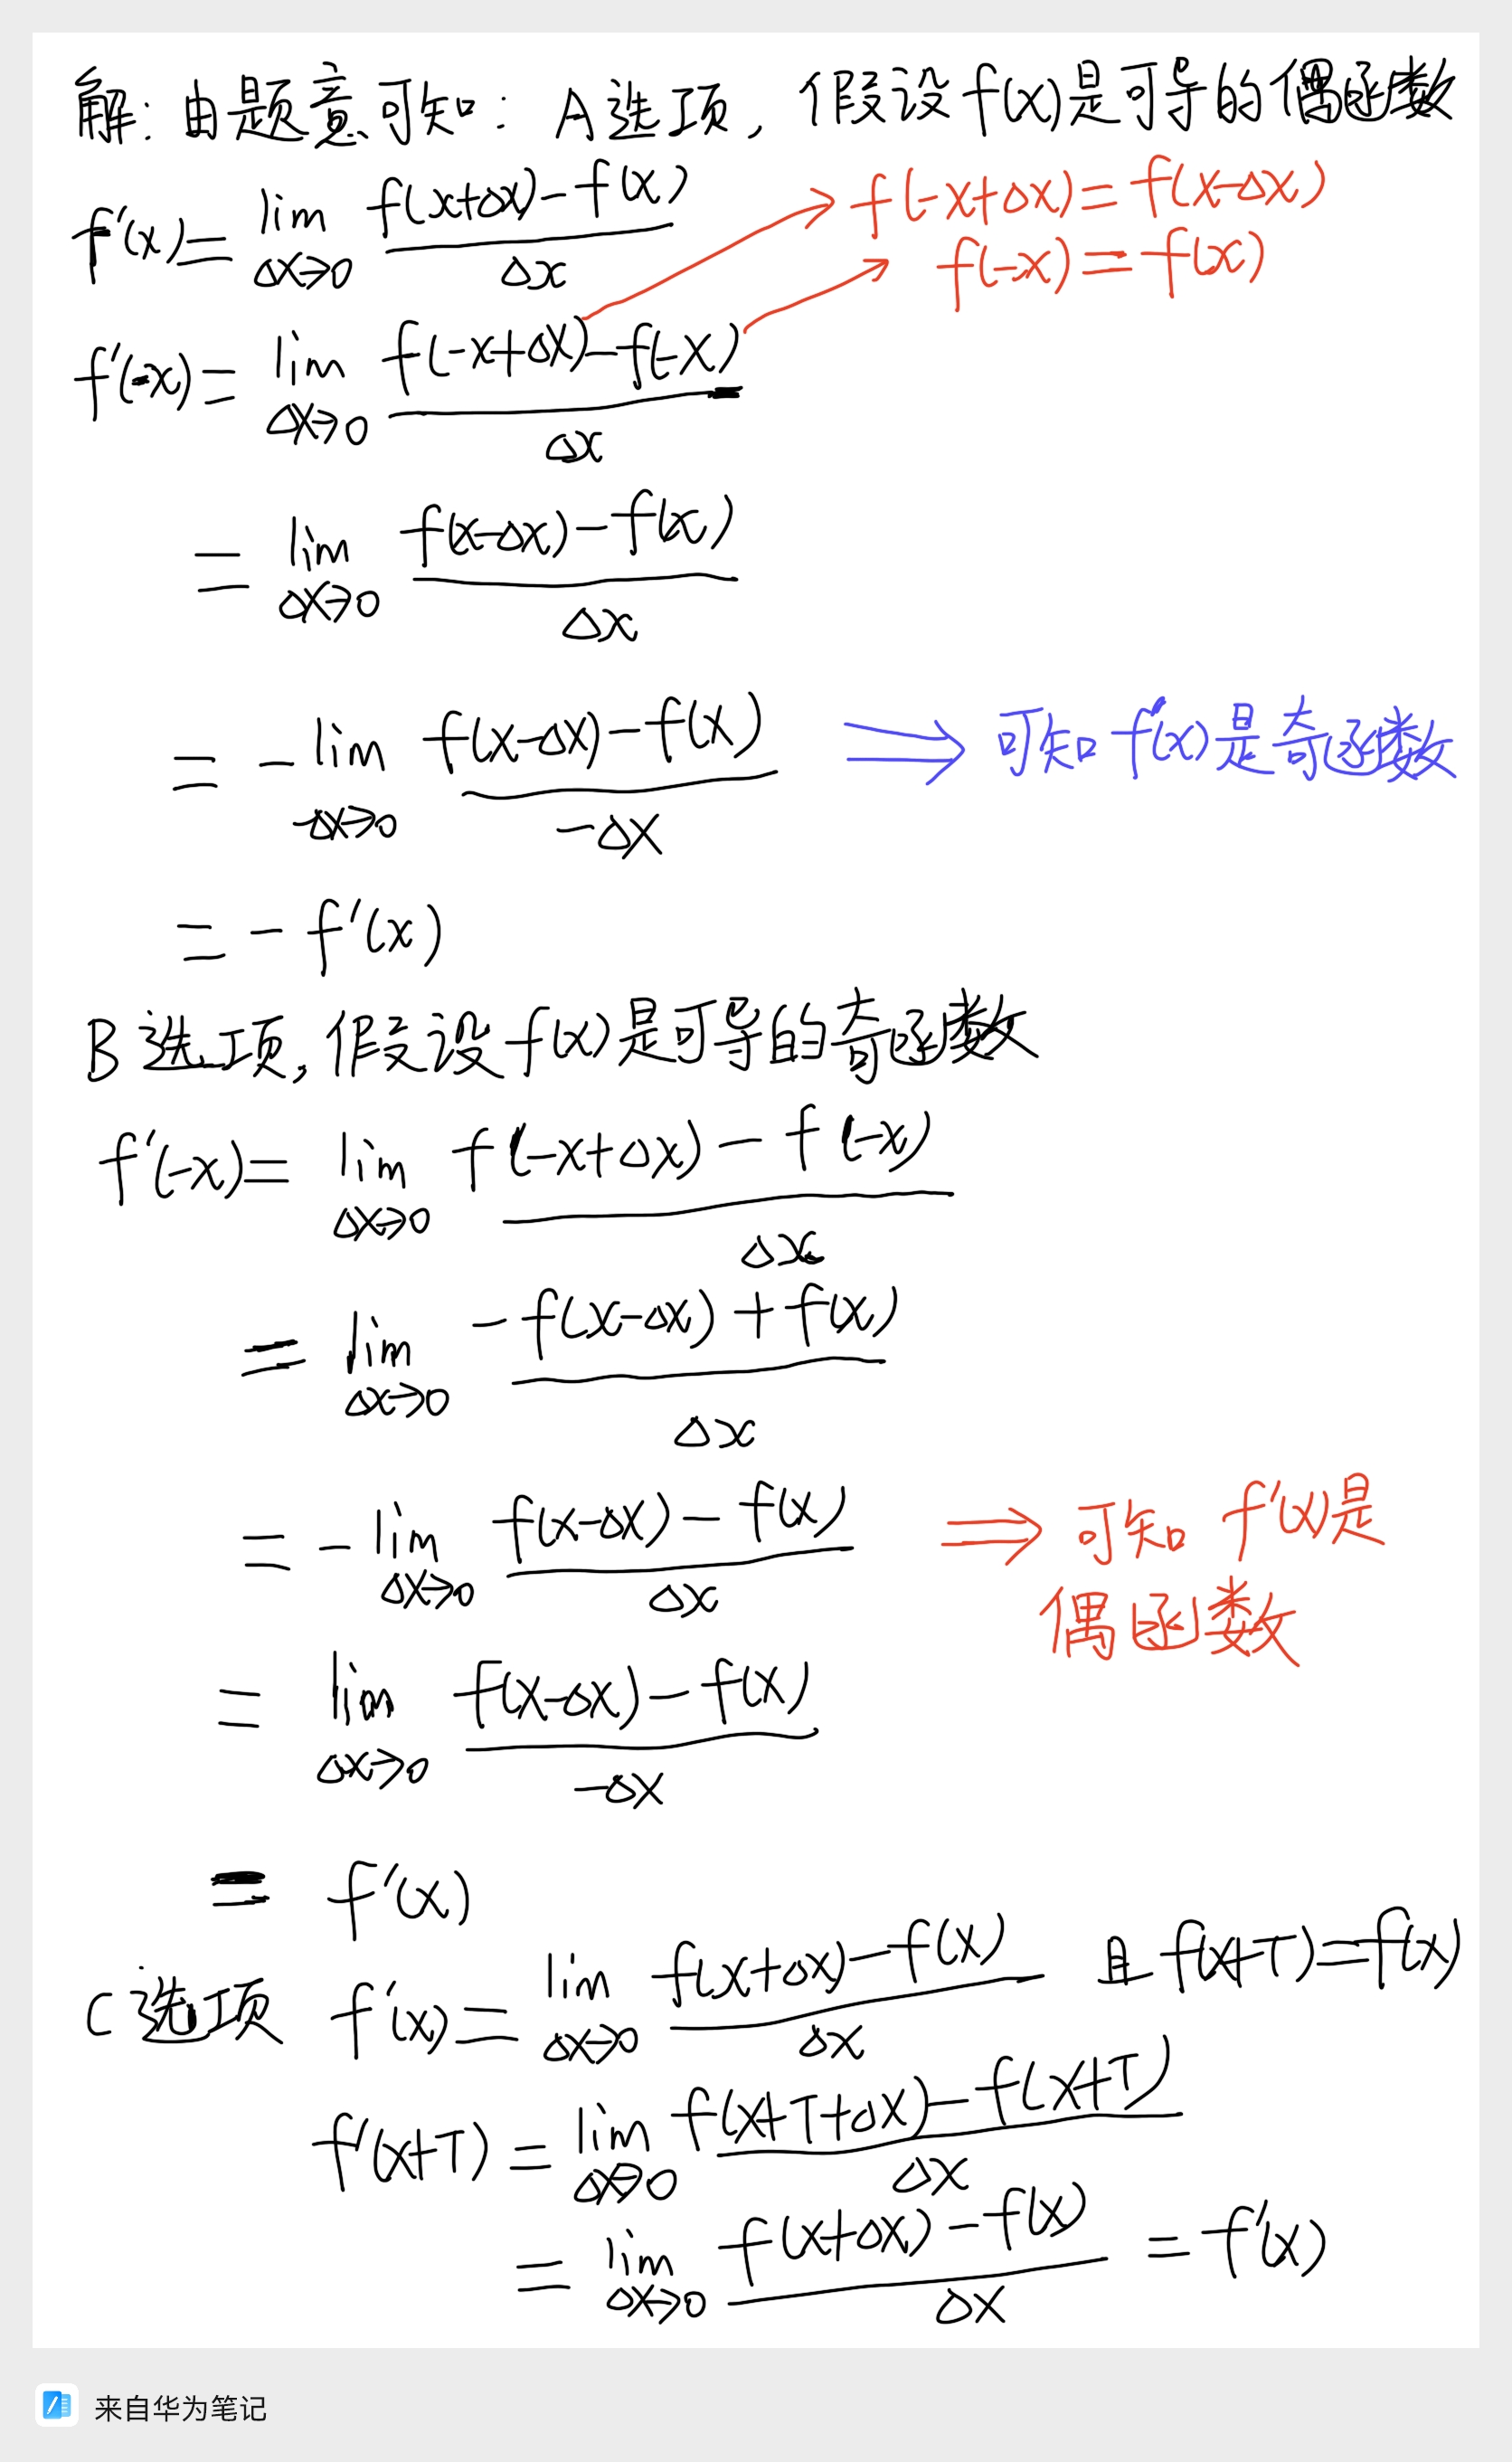 解:由题意可知: A选项, 假设f(x)是可导的偶函数
f'(x)=lim Δx→0 f(x+Δx)-f(x) / Δx
f(-x+Δx)=f(x-Δx)
f(-x)=f(x)
f'(-x)=lim Δx→0 f(-x+Δx)-f(-x) / Δx
=lim Δx→0 f(x-Δx)-f(x) / Δx
=-lim -Δx→0 f(x-Δx)-f(x) / -Δx ⟹ 可知f'(x)是奇函数
=-f'(x)
B选项,假设f(x)是可导的奇函数
f'(-x)=lim Δx→0 f(-x+Δx)-f(-x) / Δx
=lim Δx→0 -f(x-Δx)+f(x) / Δx
=-lim Δx→0 f(x-Δx)-f(x) / Δx ⟹ 可知 f'(x)是
偶函数
=lim Δx→0 f(x-Δx)-f(x) / -Δx
=f'(x)
C选项 f'(x)=lim Δx→0 f(x+Δx)-f(x) / Δx 且f(x+T)=f(x)
f'(x+T)=lim Δx→0 f(x+T+Δx)-f(x+T) / Δx
=lim Δx→0 f(x+Δx)-f(x) / Δx =f'(x)
来自华为笔记